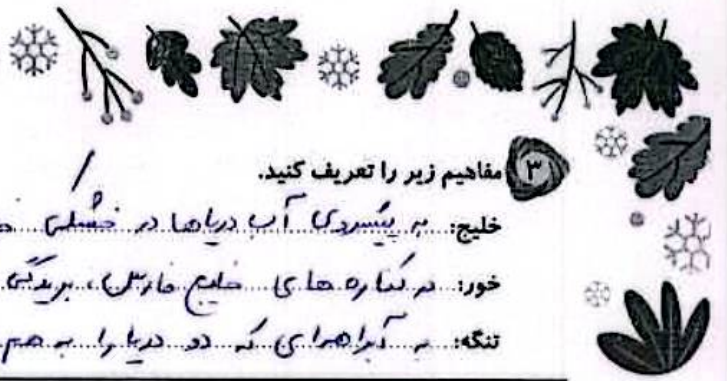 ۳ مفاهیم زیر را تعریف کنید.
خلیج: به پیشروی آب دریاها در خشکی
خور: در کناره های خلیج فارس، بریدگی
تنگه: به آبراهه‌ای که دو دریا را به هم